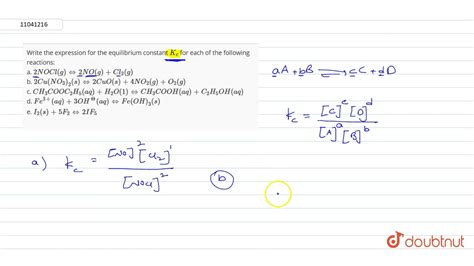 11041216
Write the expression for the equilibrium constant K_c for each of the following
reactions:
a. 2NOCl(g) ⇔ 2NO(g) + Cl₂(g)
b. 2Cu(NO₃)₂(s) ⇔ 2CuO(s) + 4NO₂(g) + O₂(g)
c. CH₃COOC₂H₅(aq) + H₂O(1) ⇔ CH₃COOH(aq) + C₂H₅OH(aq)
d. Fe³⁺(aq) + 3OH^⊖(aq) ⇔ Fe(OH)₃(s)
e. I₂(s) + 5F₂ ⇔ 2IF₅
aA + bB ⇌ cC + dD
K_c = [C]^c [D]^d / [A]^a [B]^b
a) K_c = [NO]² [Cl₂]¹ / [NOCl]²
b
doubtnut